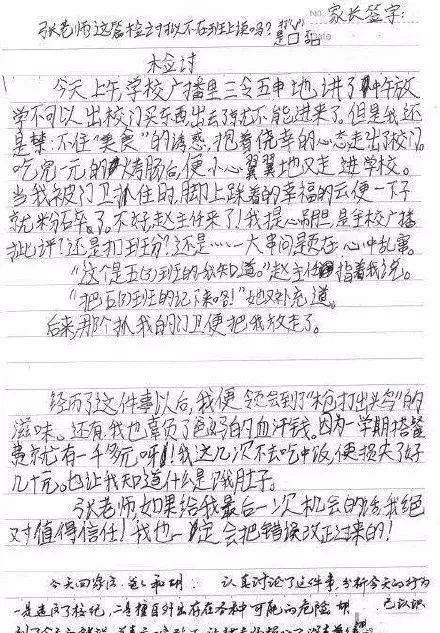 家长签字:
张老师这篇检讨可以不在班上读吗? 
是□ 否□
No.
Date
检讨
今天上午,学校广播里三令五申地讲了中午放
学不可以出校门买东西出去了就不能进来了。但是我还
是禁不住“美食”的诱惑,抱着侥幸的心态走出了校门。
吃完一元的烤肠后,便小心翼翼地又走进学校。
当我被门卫抓住时,脚上踩着的幸福的云便一下子
就粉碎了。不好,赵主任来了!我提心吊胆,是全校广播
批评?还是扣班分?还是……一大串问题在心中乱窜。
“这个是五(四)班的我知道。”赵主任指着我说。
“把五(四)班的记下来哈!”她又补充道。
后来,那个抓我的门卫便把我放走了。
经历了这件事以后,我便领会到了“枪打出头鸟”的
滋味。还有,我也辜负了爸妈的血汗钱。因为一学期搭餐
费就有一千多元呀!我这几次不去吃中饭,便损失了好
几十元。也让我知道什么是饿肚子。
张老师,如果给我最后一次机会的话我绝
对值得信任!我也一定会把错误改正过来的!
今天回家后,爸爸和 认真讨论了这件事,分析今天的行为
一是违反了校纪,二是擅自外出存在各种可能的危险 已认识
到了